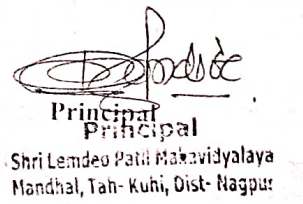 Principal
Principal
Shri Lemdeo Patil Mahavidyalaya
Mandhal, Tah- Kuhi, Dist- Nagpur